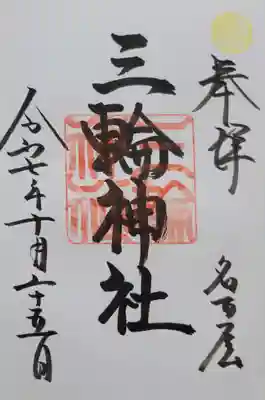 奉拝
名古屋
三輪神社
令和七年十月二十五日